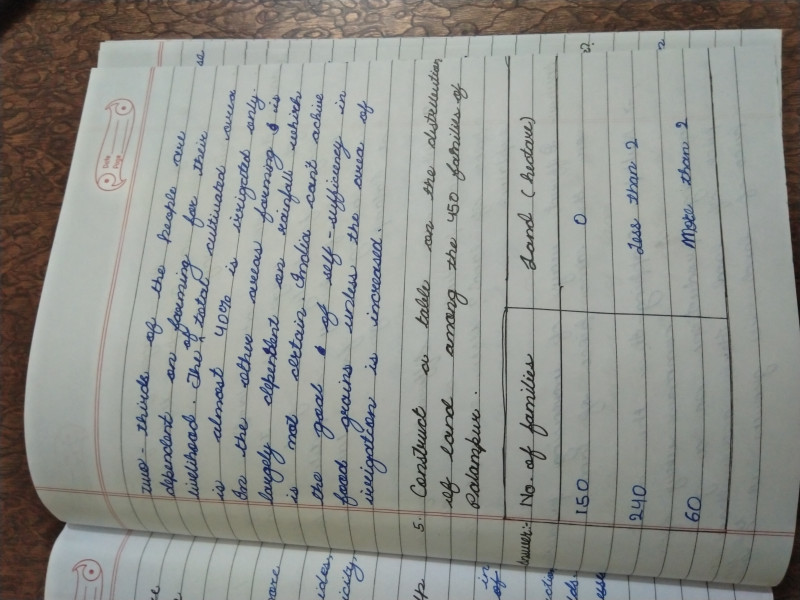 Date
Page
two-thirds of the people are
dependent on farming for their
livelihood. The total cultivated area
is almost 40% is irrigated only.
In the other areas farming is
largely dependent on rainfall which
is not certain. India can't achive
the goal of self-sufficiency in
food grains unless the area of
irrigation is increased.
5. Construct a table on the distribution
of land among the 450 families of
Palampur.
Answer:- No. of families Land (hectare)
150 0
240 Less than 2
60 More than 2